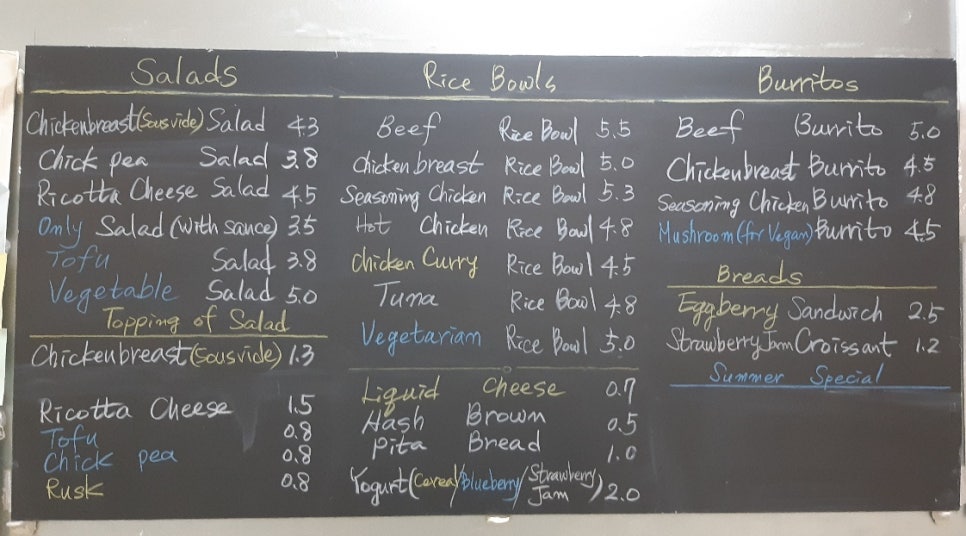 Salads
Chickenbreast(Sousvide) Salad 4.3
Chick pea Salad 3.8
Ricotta Cheese Salad 4.5
Only Salad (with sauce) 3.5
Tofu Salad 3.8
Vegetable Salad 5.0
Topping of Salad
Chickenbreast(Sousvide) 1.3
Ricotta Cheese 1.5
Tofu 0.8
Chick pea 0.8
Rusk 0.8
Rice Bowls
Beef Rice Bowl 5.5
Chickenbreast Rice Bowl 5.0
Seasoning Chicken Rice Bowl 5.3
Hot Chicken Rice Bowl 4.8
Chicken Curry Rice Bowl 4.5
Tuna Rice Bowl 4.8
Vegetarian Rice Bowl 5.0
Liquid Cheese 0.7
Hash Brown 0.5
Pita Bread 1.0
Yogurt(Cereal/Blueberry/Strawberry Jam) 2.0
Burritos
Beef Burrito 5.0
Chickenbreast Burrito 4.5
Seasoning Chicken Burrito 4.8
Mushroom(for Vegan) Burrito 4.5
Breads
Eggberry Sandwich 2.5
Strawberry Jam Croissant 1.2
Summer Special